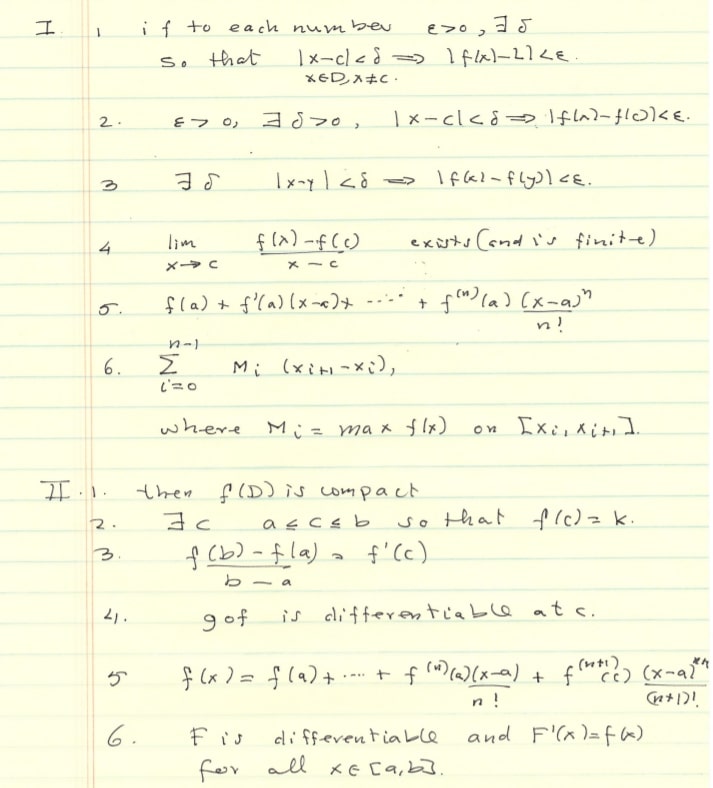 I 1 if to each number ε>0, ∃ δ
so that |x-c|<δ ⟹ |f(x)-L|<ε.
x∈D, x≠c.
2. ε>0, ∃ δ>0, |x-c|<δ ⟹ |f(x)-f(c)|<ε.
3 ∃ δ |x-y|<δ ⟹ |f(x)-f(y)|<ε.
4 lim x→c (f(x)-f(c))/(x-c) exists (and is finite)
5. f(a) + f'(a)(x-a)+ ..... + f⁽ⁿ⁾(a) (x-a)ⁿ/n!
6. n-1 Σ i=0 Mᵢ (xᵢ₊₁-xᵢ),
where Mᵢ = max f(x) on [xᵢ, xᵢ₊₁].
II. 1. then f(D) is compact
2. ∃ c a≤c≤b so that f(c)=k.
3. (f(b)-f(a))/(b-a) = f'(c)
4. gof is differentiable at c.
5 f(x) = f(a)+ .... + f⁽ⁿ⁾(a)(x-a)/n! + f⁽ⁿ⁺¹⁾(c) (x-a)ⁿ⁺¹/(n+1)!
6. F is differentiable and F'(x)=f(x)
for all x∈[a,b].